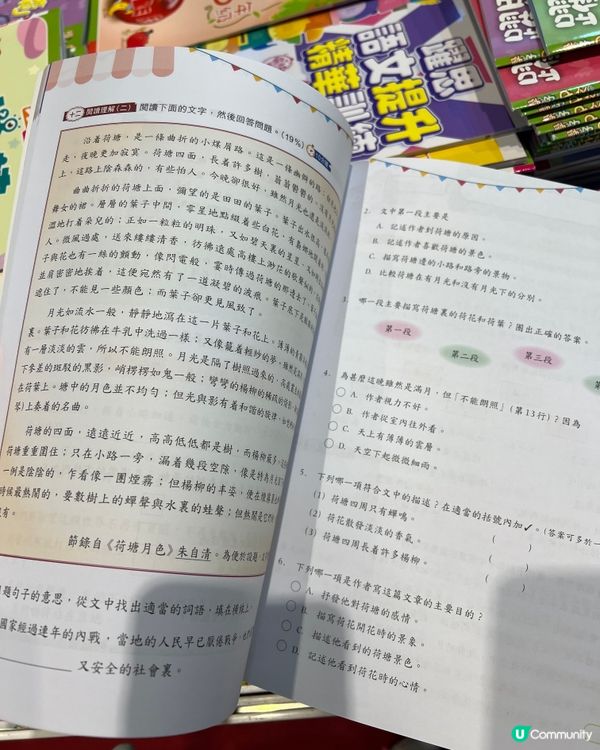 十二 閱讀理解(二) 閱讀下面的文字,然後回答問題。(19%)
沿着荷塘,是一條曲折的小煤屑路。這是一條幽僻的路;
走,夜晚更加寂寞。荷塘四面,長着許多樹,蓊蓊鬱鬱的。
上,這路上陰森森的,有些怕人。今晚卻很好,雖然月光也還是
曲曲折折的荷塘上面,彌望的是田田的葉子。葉子出水很高,
舞女的裙。層層的葉子中間,零星地點綴着些白花,有
澀地打着朵兒的;正如一粒粒的明珠,又如碧天裏的星星,
人。微風過處,送來縷縷清香,彷彿遠處高樓上渺茫的歌聲似的。
子與花也有一絲的顫動,像閃電般,霎時傳過荷塘的那邊去了。
並肩密密地挨着,這便宛然有了一道凝碧的波痕。葉子底下是
遮住了,不能見一些顏色;而葉子卻更見風致了。
月光如流水一般,靜靜地瀉在這一片葉子和花上。薄薄的青霧
裏。葉子和花彷彿在牛乳中洗過一樣;又像籠着輕紗的夢。雖然是滿月
有一層淡淡的雲,所以不能朗照。月光是隔了樹照過來的,高處叢生的
下參差的斑駁的黑影,峭楞楞如鬼一般;彎彎的楊柳的稀疏的倩影,
在荷葉上。塘中的月色並不均勻;但光與影有着和諧的旋律,如
琴)上奏着的名曲。
荷塘的四面,遠遠近近,高高低低都是樹,而楊柳最多。
荷塘重重圍住;只在小路一旁,漏着幾段空隙,像是特為月光
一例是陰陰的,乍看像一團煙霧;但楊柳的丰姿,便在煙霧裏
時候最熱鬧的,要數樹上的蟬聲與水裏的蛙聲;但熱鬧是它們
有。
節錄自《荷塘月色》朱自清。為便於設題,
題句子的意思,從文中找出適當的詞語,填在橫線上。
國家經過連年的內戰,當地的人民早已厭倦戰爭,
又安全的社會裏。
2. 文中第一段主要是
A. 記述作者到荷塘的原因。
B. 記述作者喜歡荷塘的景色。
C. 描寫荷塘邊的小路和路旁的景物。
D. 比較荷塘在有月光和沒有月光下的分別。
3. 哪一段主要描寫荷塘裏的荷花和荷葉?圈出正確的答案。
第一段
第二段
第三段
4. 為甚麼這晚雖然是滿月,但「不能朗照」(第13行)?因為
A. 作者視力不好。
B. 作者從室內往外看。
C. 天上有薄薄的雲層。
D. 天空下起微微細雨。
5. 下列哪一項符合文中的描述?在適當的括號內加✓。(答案可多於一
(1) 荷塘四周只有蟬鳴。 ( )
(2) 荷花散發淡淡的香氣。 ( )
(3) 荷塘四周長着許多楊柳。 ( )
6. 下列哪一項是作者寫這篇文章的主要目的?
A. 抒發他對荷塘的感情。
B. 描寫荷花開花時的景象。
C. 描述他看到的荷塘景色。
D. 記述他看到荷花時的心情。
語文提升
精華訓練
U Community